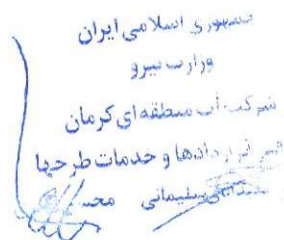 جمهوری اسلامی ایران
وزارت نیرو
شرکت آب منطقه‌ای کرمان
قراردادها و خدمات طرحها
سلیمانی